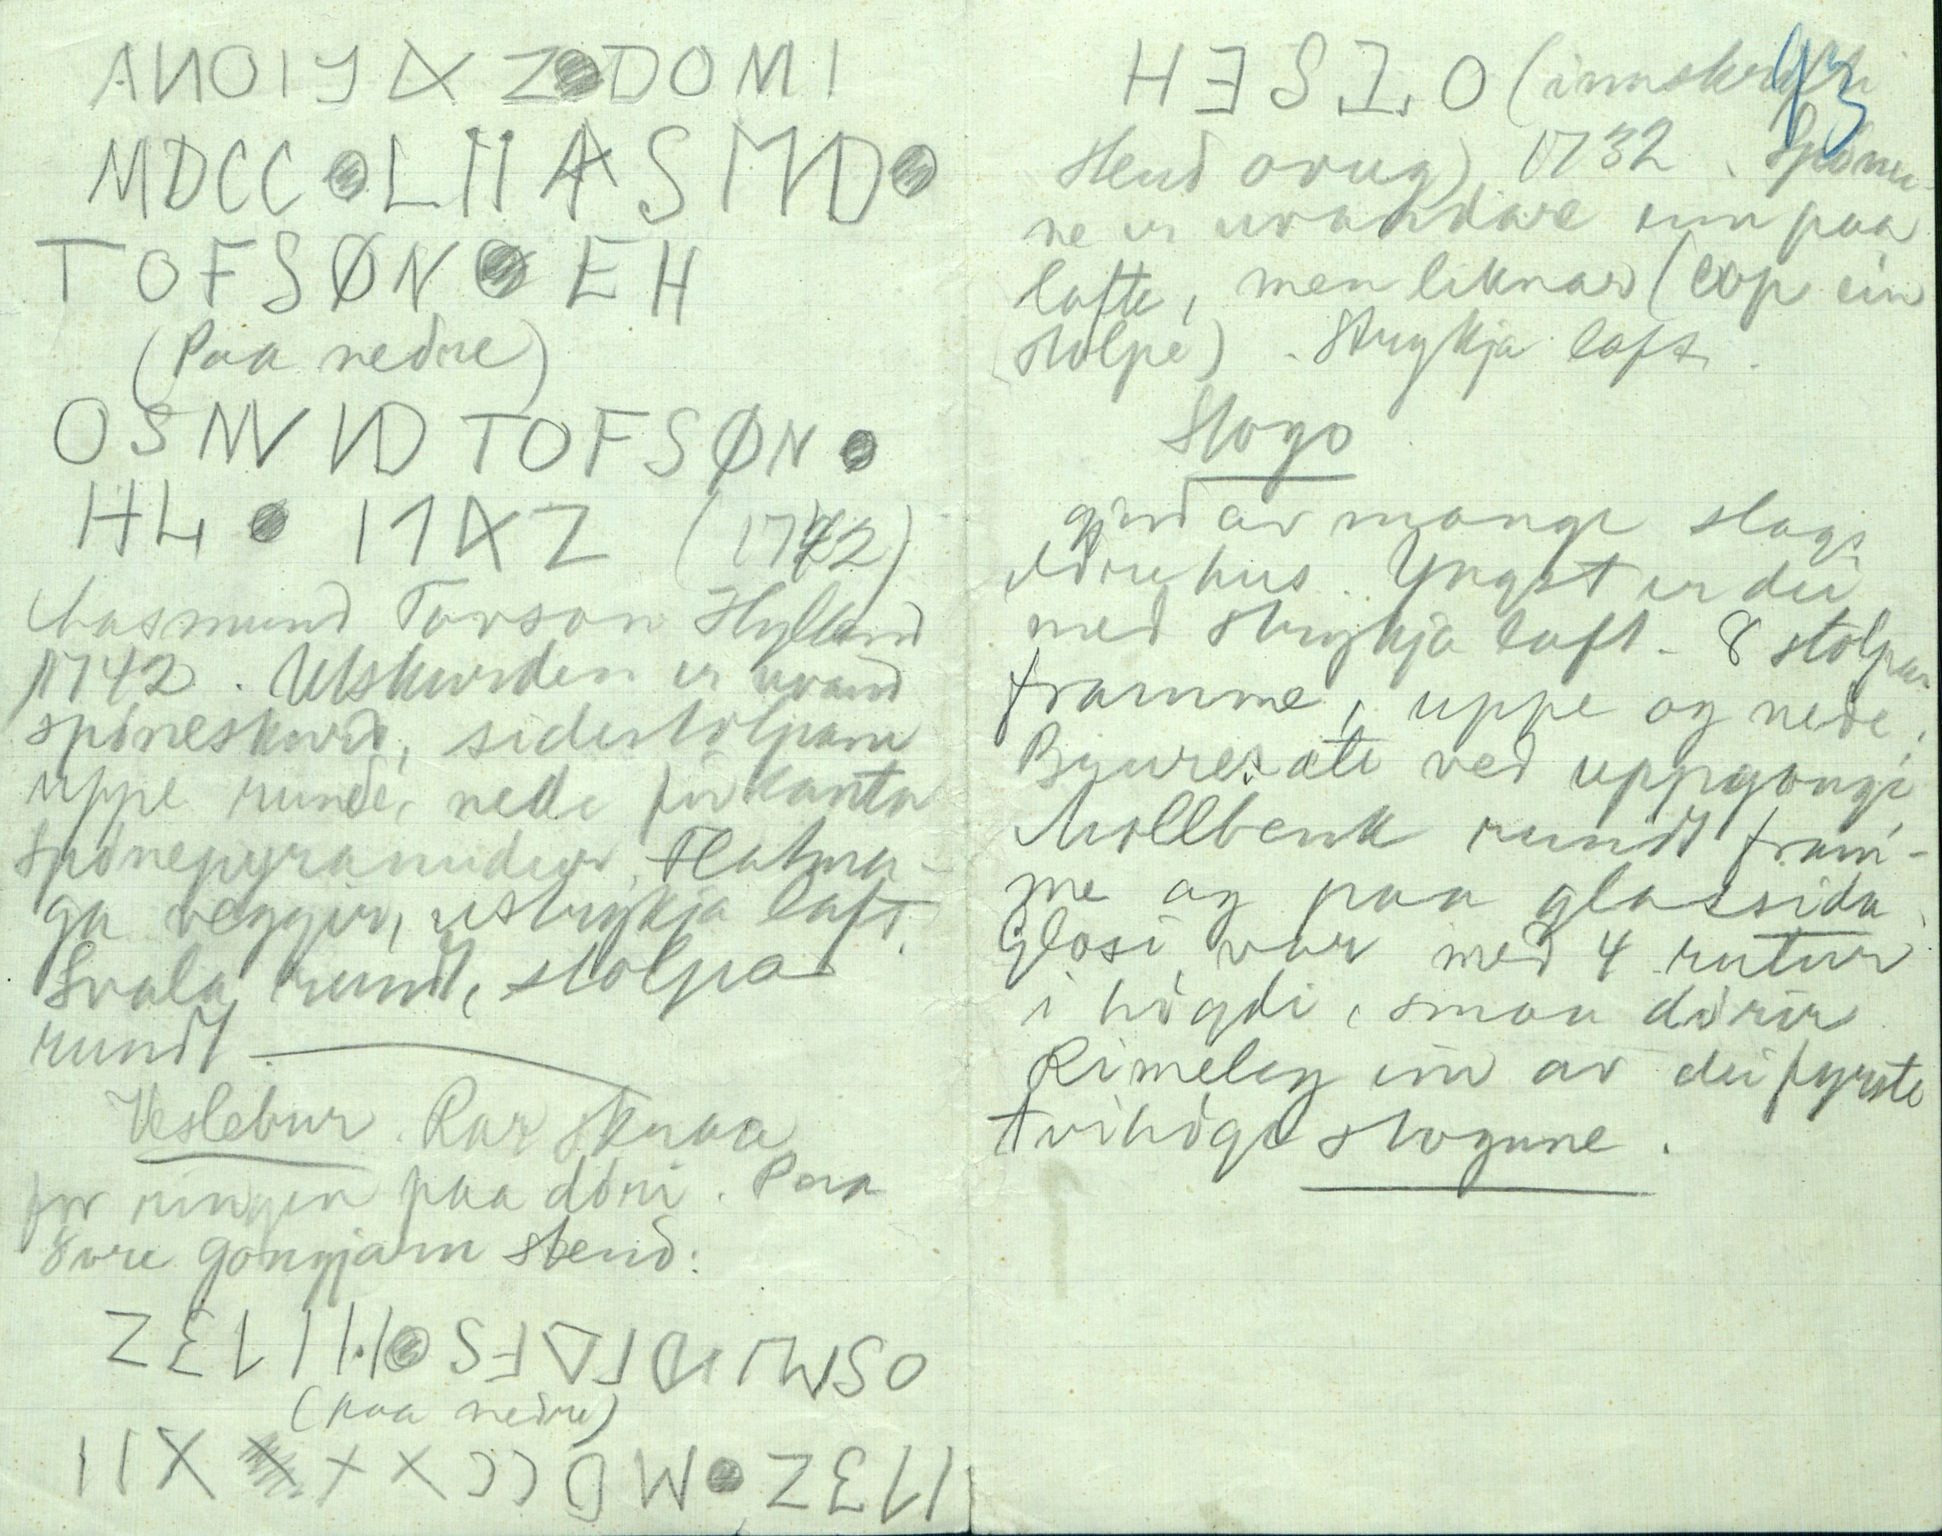 ANO 1742 DOMI
MDCC LII ASMD
TOFSØN EH
(Paa nedre)
OSNVND TOFSØN
HL 1742 (1742)
Aasmund Torson Hylland
1742. Utskurden er vand
spóneskurd, siderstolparne
uppe runde, nede firkanta
Spónepyramider, Flatma-
ga veggir, ustrykja laft.
Svala rundt, stolpar
rundt.
Veslebur. Rar skraa
for ringen paa döri. Paa
övre gongjarn stend:
OSMUNDTOFS H 1732
(paa nedre)
1732 MDCCXXXII
93
HESTO (innskrifti
stend ovug) 1732. Spóna-
ne er vrandare enn paa
lofte, men liknar (ein
stolpe). Strykja laft.
Stogo
gjord av mange slags
eldre hus. Yngst er dei
med strykja laft. 8 stolpar
framme, uppe og nede.
ved uppgongji
Mollbenk rundt fram-
me og paa glassida.
Glasi var med 4 rutur
i högdi, smaa dörir
Rimeleg ein av dei fyrste
tvihöge stogune.